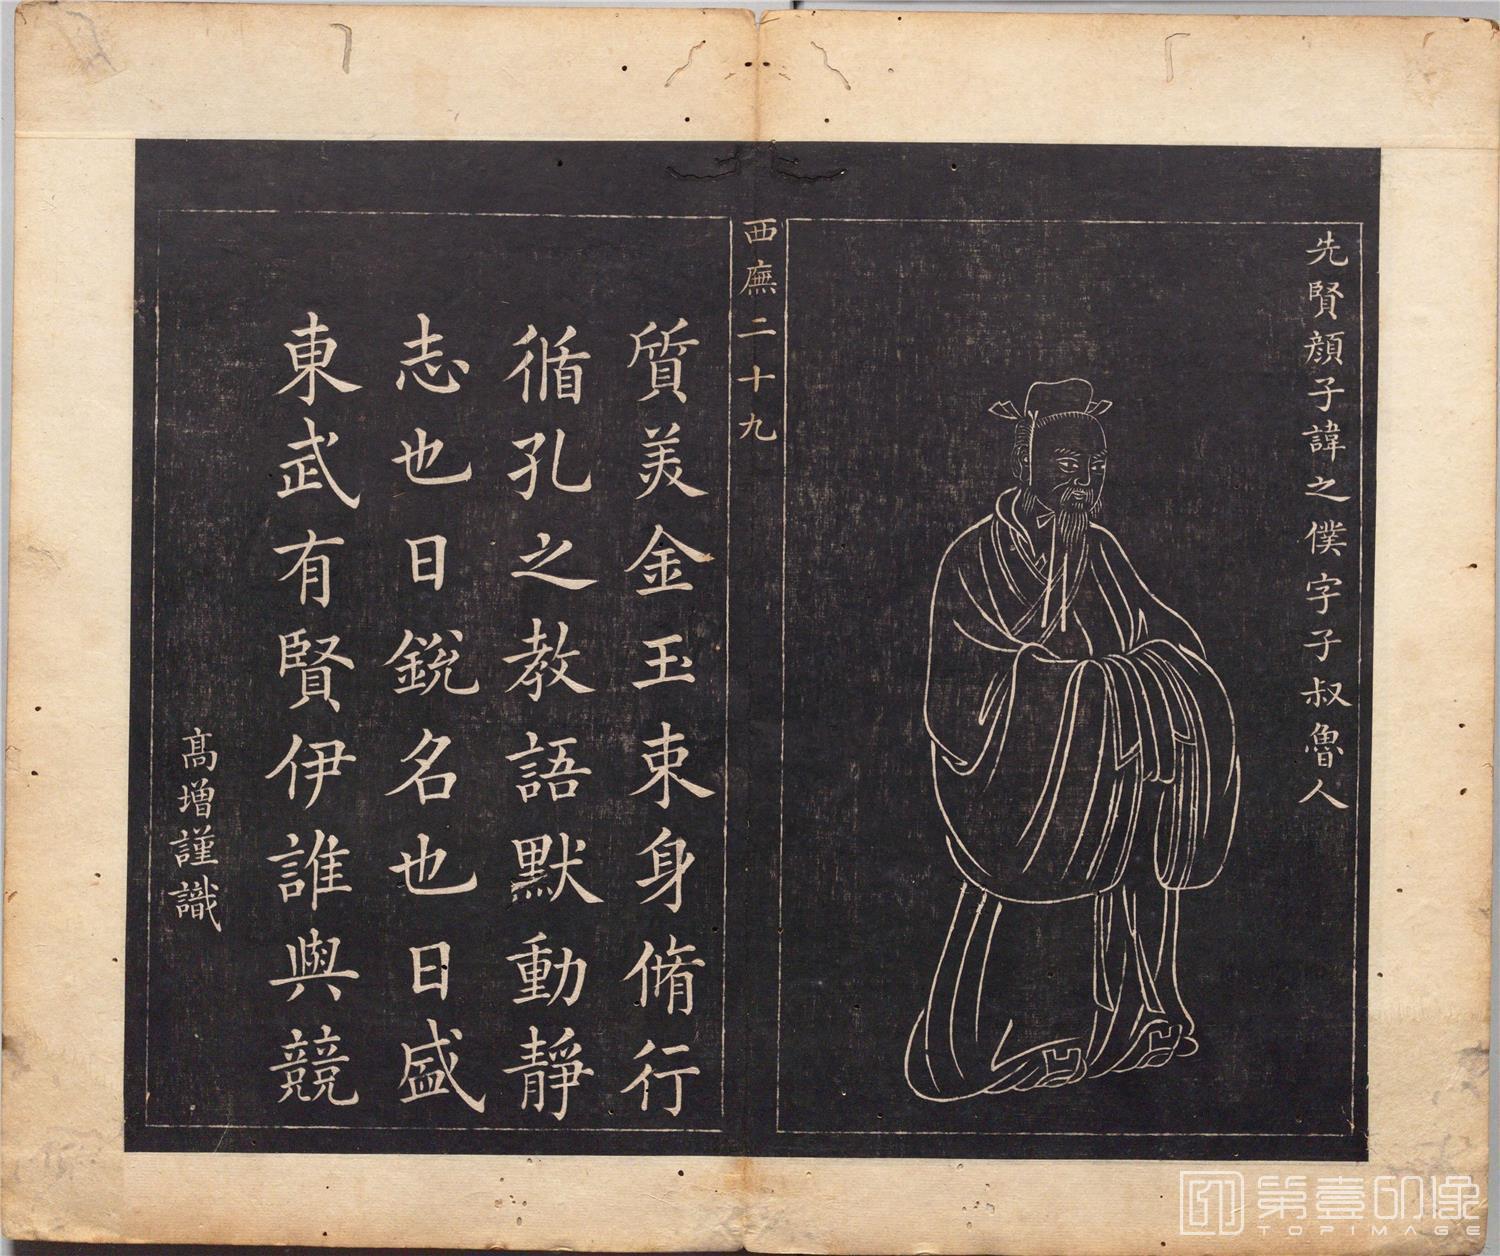 先賢顔子諱之僕字子叔魯人
西廡二十九
質美金玉束身脩行
循孔之教語默動靜
志也日銳名也日盛
東武有賢伊誰與競
高增謹識
第壹印像
TOPIMAGE